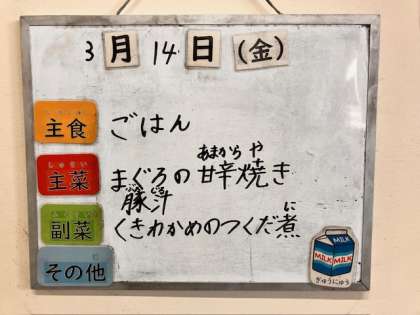 3月14日(金)
主食 ごはん
しゅさい あまから や
主菜 まぐろの甘辛焼き
豚汁
に
副菜 くきわかめのつくだ煮
その他
MILK
MILK MILK
ぎゅうにゅう